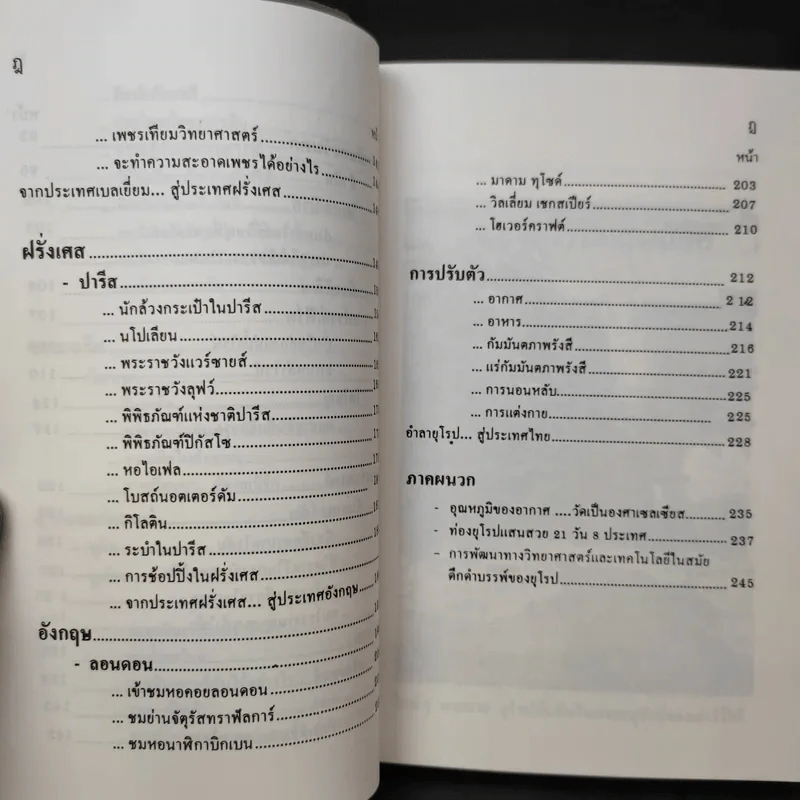 ฎ
... เพชรเทียมวิทยาศาสตร์
... จะทำความสะอาดเพชรได้อย่างไร
จากประเทศเบลเยี่ยม... สู่ประเทศฝรั่งเศส
ฝรั่งเศส
- ปารีส
... นักล้วงกระเป๋าในปารีส
... นโปเลียน
... พระราชวังแวร์ซายส์
... พระราชวังลุฟว์
... พิพิธภัณฑ์แห่งชาติปารีส
... พิพิธภัณฑ์ปิกัสโซ
... หอไอเฟล
... โบสถ์นอตเตอร์ดัม
... กิโลติน
... ระบำในปารีส
... การช้อปปิ้งในฝรั่งเศส
... จากประเทศฝรั่งเศส... สู่ประเทศอังกฤษ
อังกฤษ
- ลอนดอน
... เข้าชมหอคอยลอนดอน
... ชมย่านจัตุรัสทราฟัลการ์
... ชมหอนาฬิกาบิกเบน
ฏ
หน้า
... มาดาม ทุโซด์ 203
... วิลเลี่ยม เชกสเปียร์ 207
... โฮเวอร์คราฟต์ 210
การปรับตัว 212
... อากาศ 212
... อาหาร 214
... กัมมันตภาพรังสี 216
... แร่กัมมันตภาพรังสี 221
... การนอนหลับ 225
... การแต่งกาย 225
อำลายุโรป... สู่ประเทศไทย 228
ภาคผนวก
- อุณหภูมิของอากาศ ....วัดเป็นองศาเซลเซียส 235
- ท่องยุโรปแสนสวย 21 วัน 8 ประเทศ 237
- การพัฒนาทางวิทยาศาสตร์และเทคโนโลยีในสมัย
ดึกดำบรรพ์ของยุโรป 245